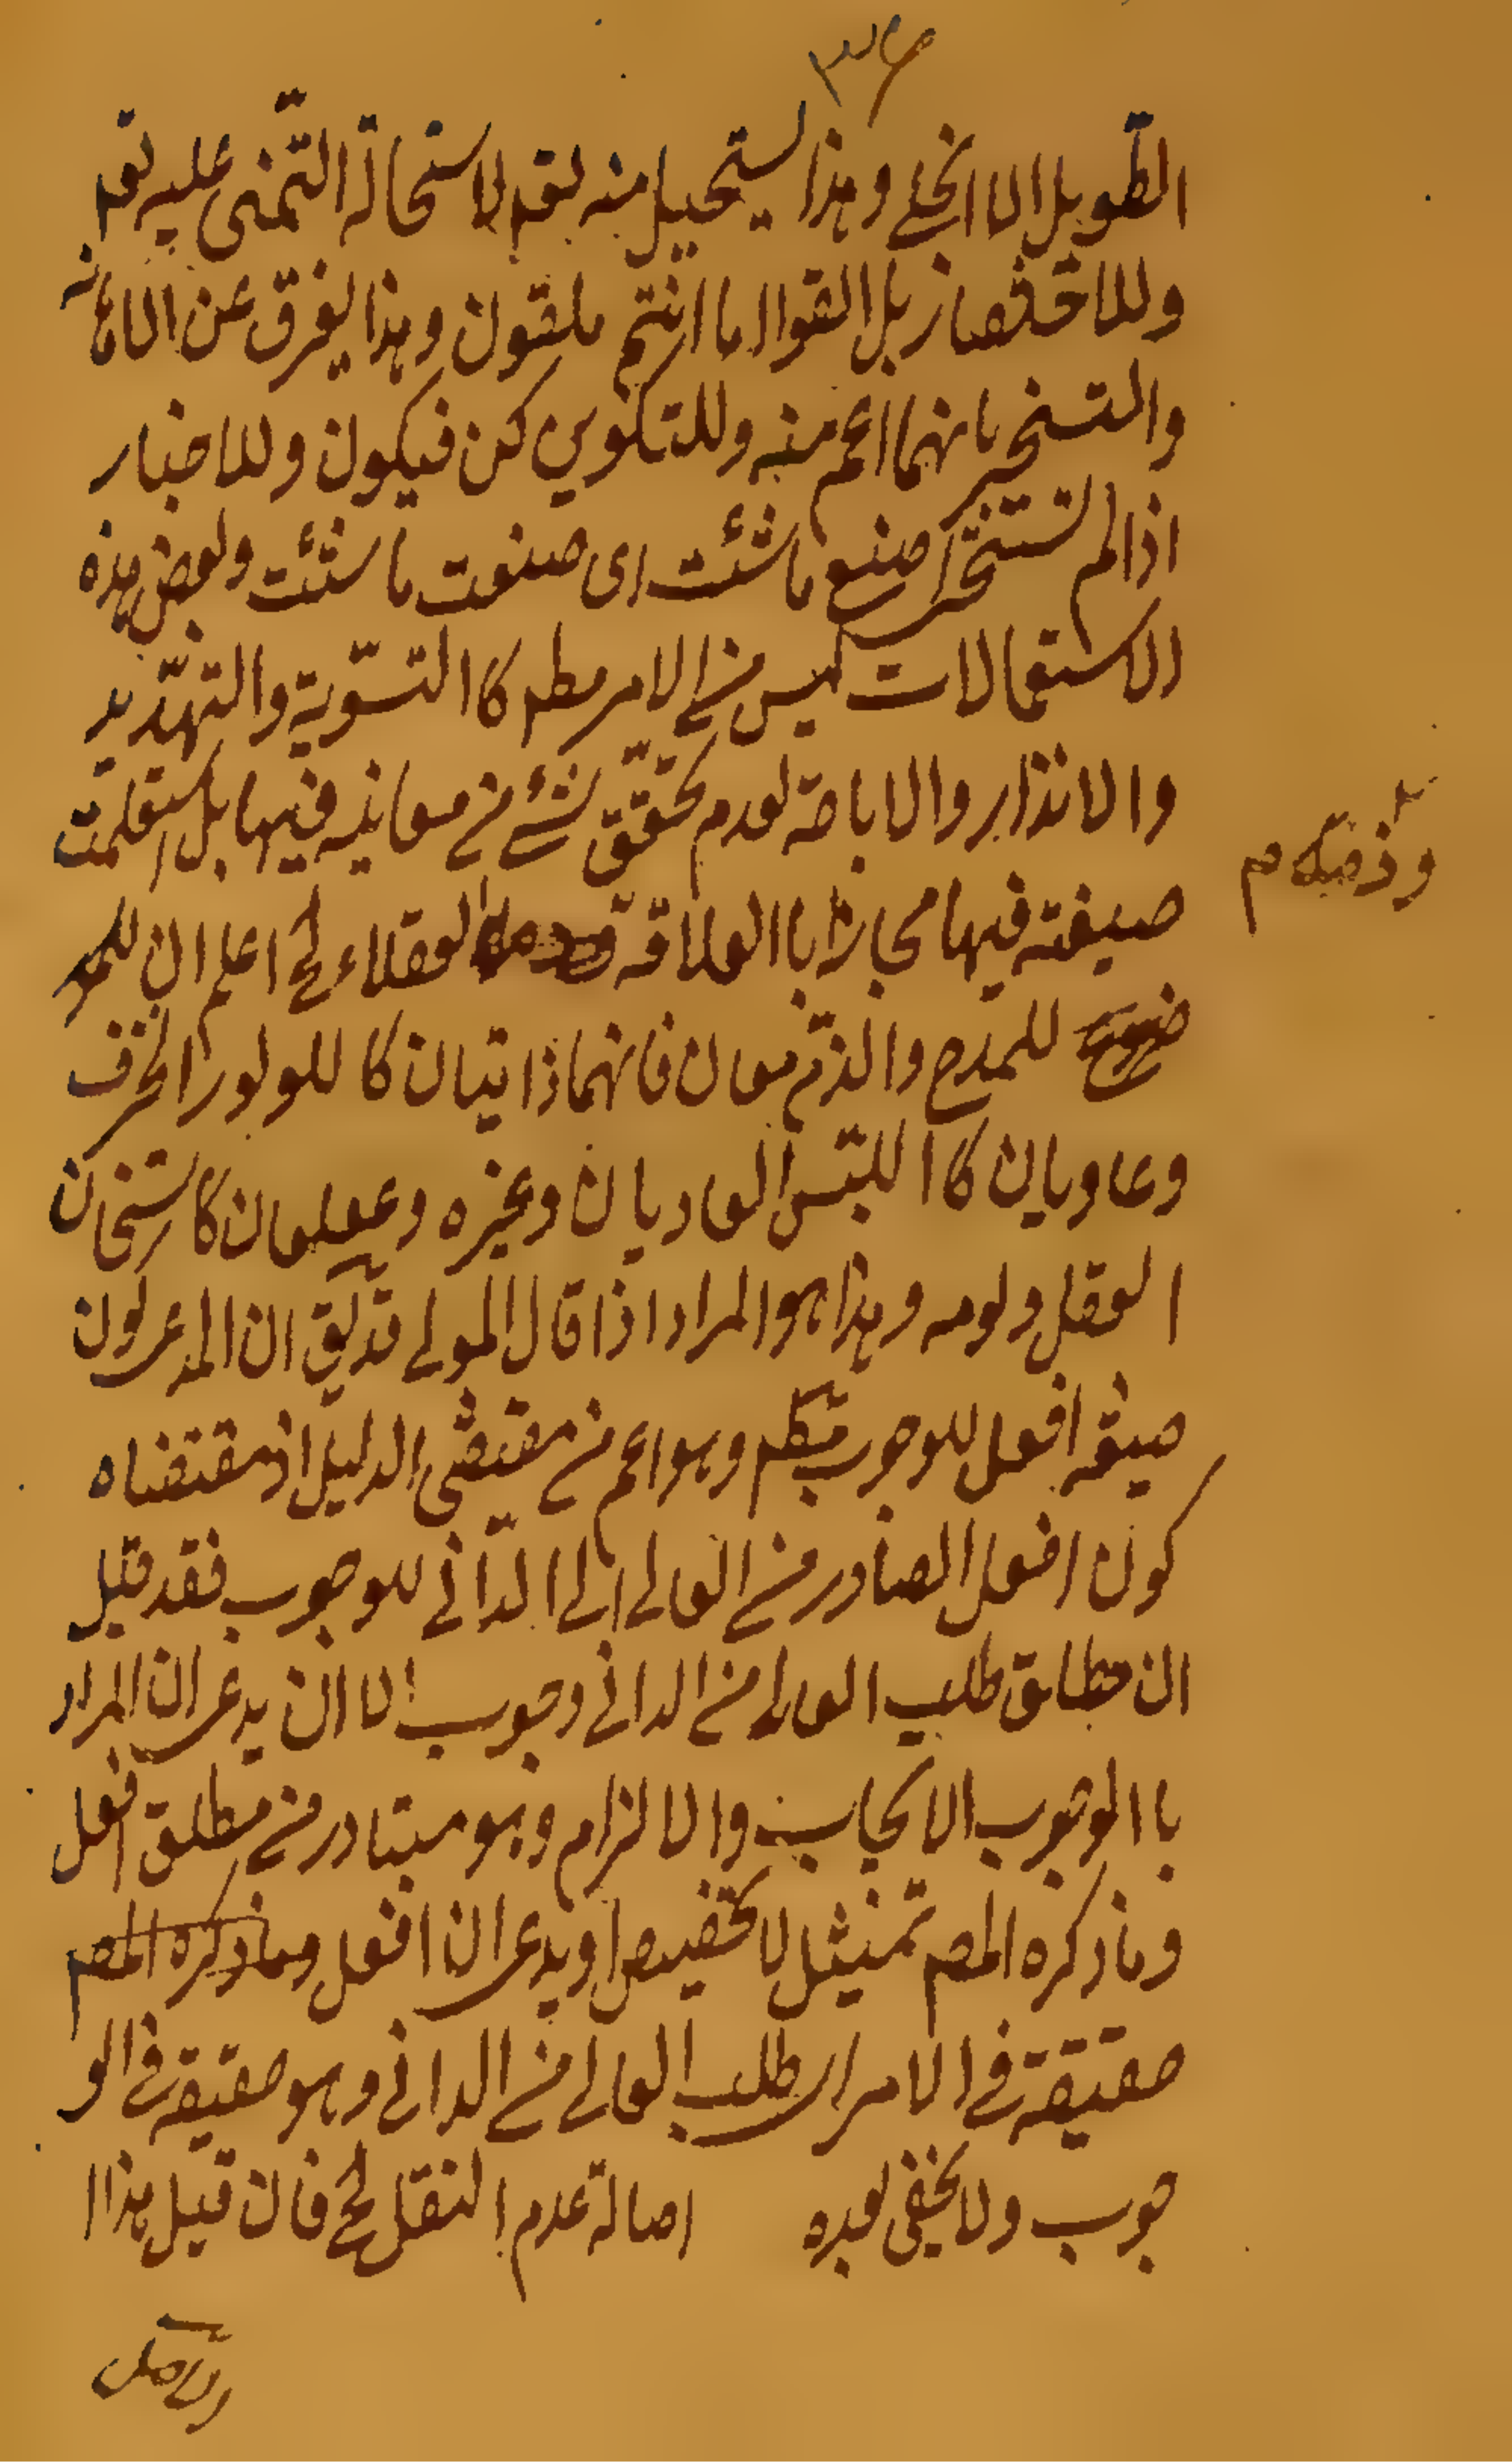 ٣٦
الطويل الا انجلي وهذا يستحيل منه تعم لاستحالة التمنى عليه تع
وللاحتقار بل القوا ما انتم ملقون وهذا يفرق عن الاهانه
والتسخير بانهما اعم منه وللتكوين كن فيكون وللاخبار
اذا لم تستحى اصنع ما شئت اى صنعت ما شئت وبعض هذه
الاستعمالات ليس من الامر مطم كا التسوية والتهديد
والانذار والاباحة لعدم تحقق شئ من معانيه فيها بل استعملت
صيغته فيها مجازا با العلاقة العقلاء لح اعلم ان للحمد
للمدح والذم معان فانهما ذاتيان كا للولور الخزف
وعاديان كا اللبس العاديان وغيره وعقليان كاستحان
العقل ولومه وهذا هو المراد اذا قال المولى قد يق ان المدعى لون
صيغة افعل للوجوب متكلم وهو اعم من مقتضى الدليل اذ مقتضاه
كون افعل الصادر من العالى الى الدانى للوجوب فقد قيل
ان مطلق طلب العالى من الدانى وجوب الا ان يدعى ان المراد
با الوجوب الايجاب والالزام وهو متبادر من مطلق افعل
وما ذكره المصم تمثيل لا تخصيص او يدعى ان افعل وما ذكره المصم
حقيقة فى الامر اى طلب العالى من الدانى وهو حقيقة فى الو
جوب ولا يخفى بعده اصالة عدم النقل لح فان قيل هذا ا